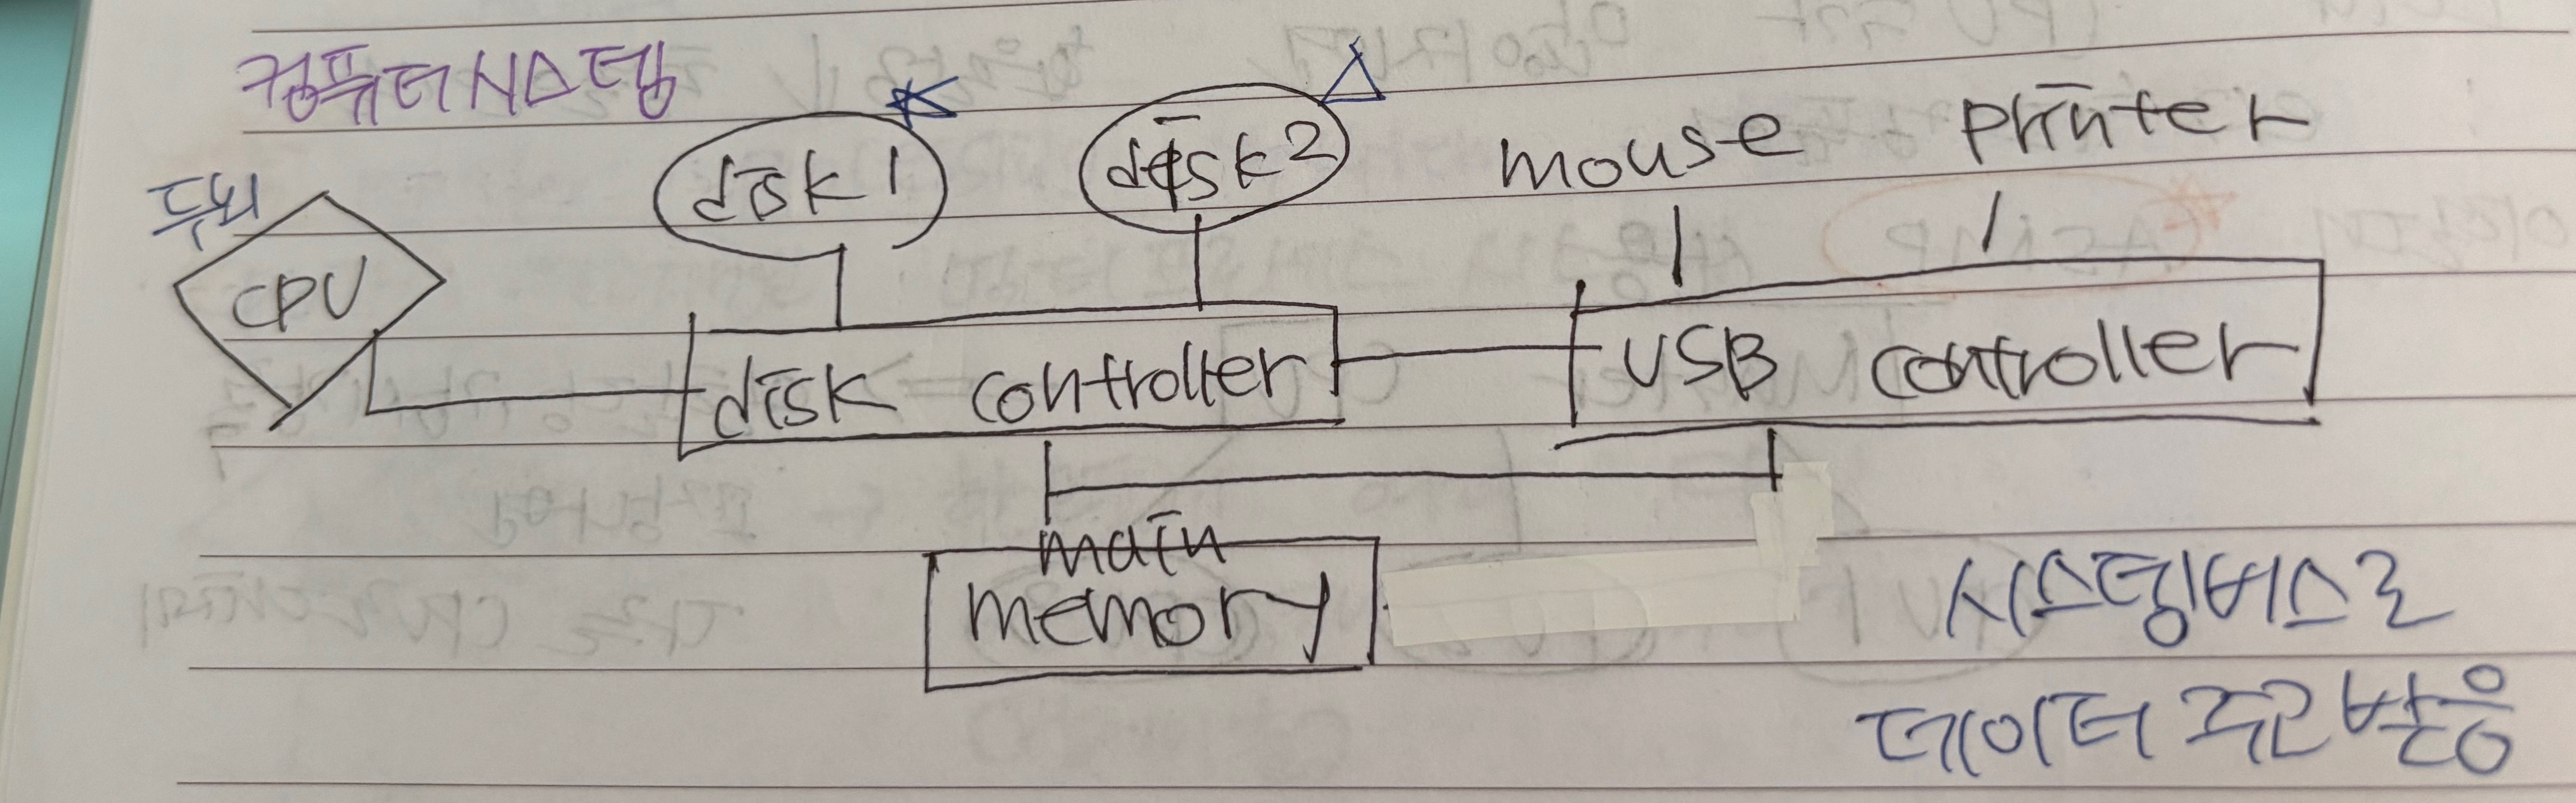 컴퓨터시스템
두뇌
CPU
disk1
disk2
mouse
printer
disk controller
USB controller
main
memory
시스템버스로
데이터 주고받음